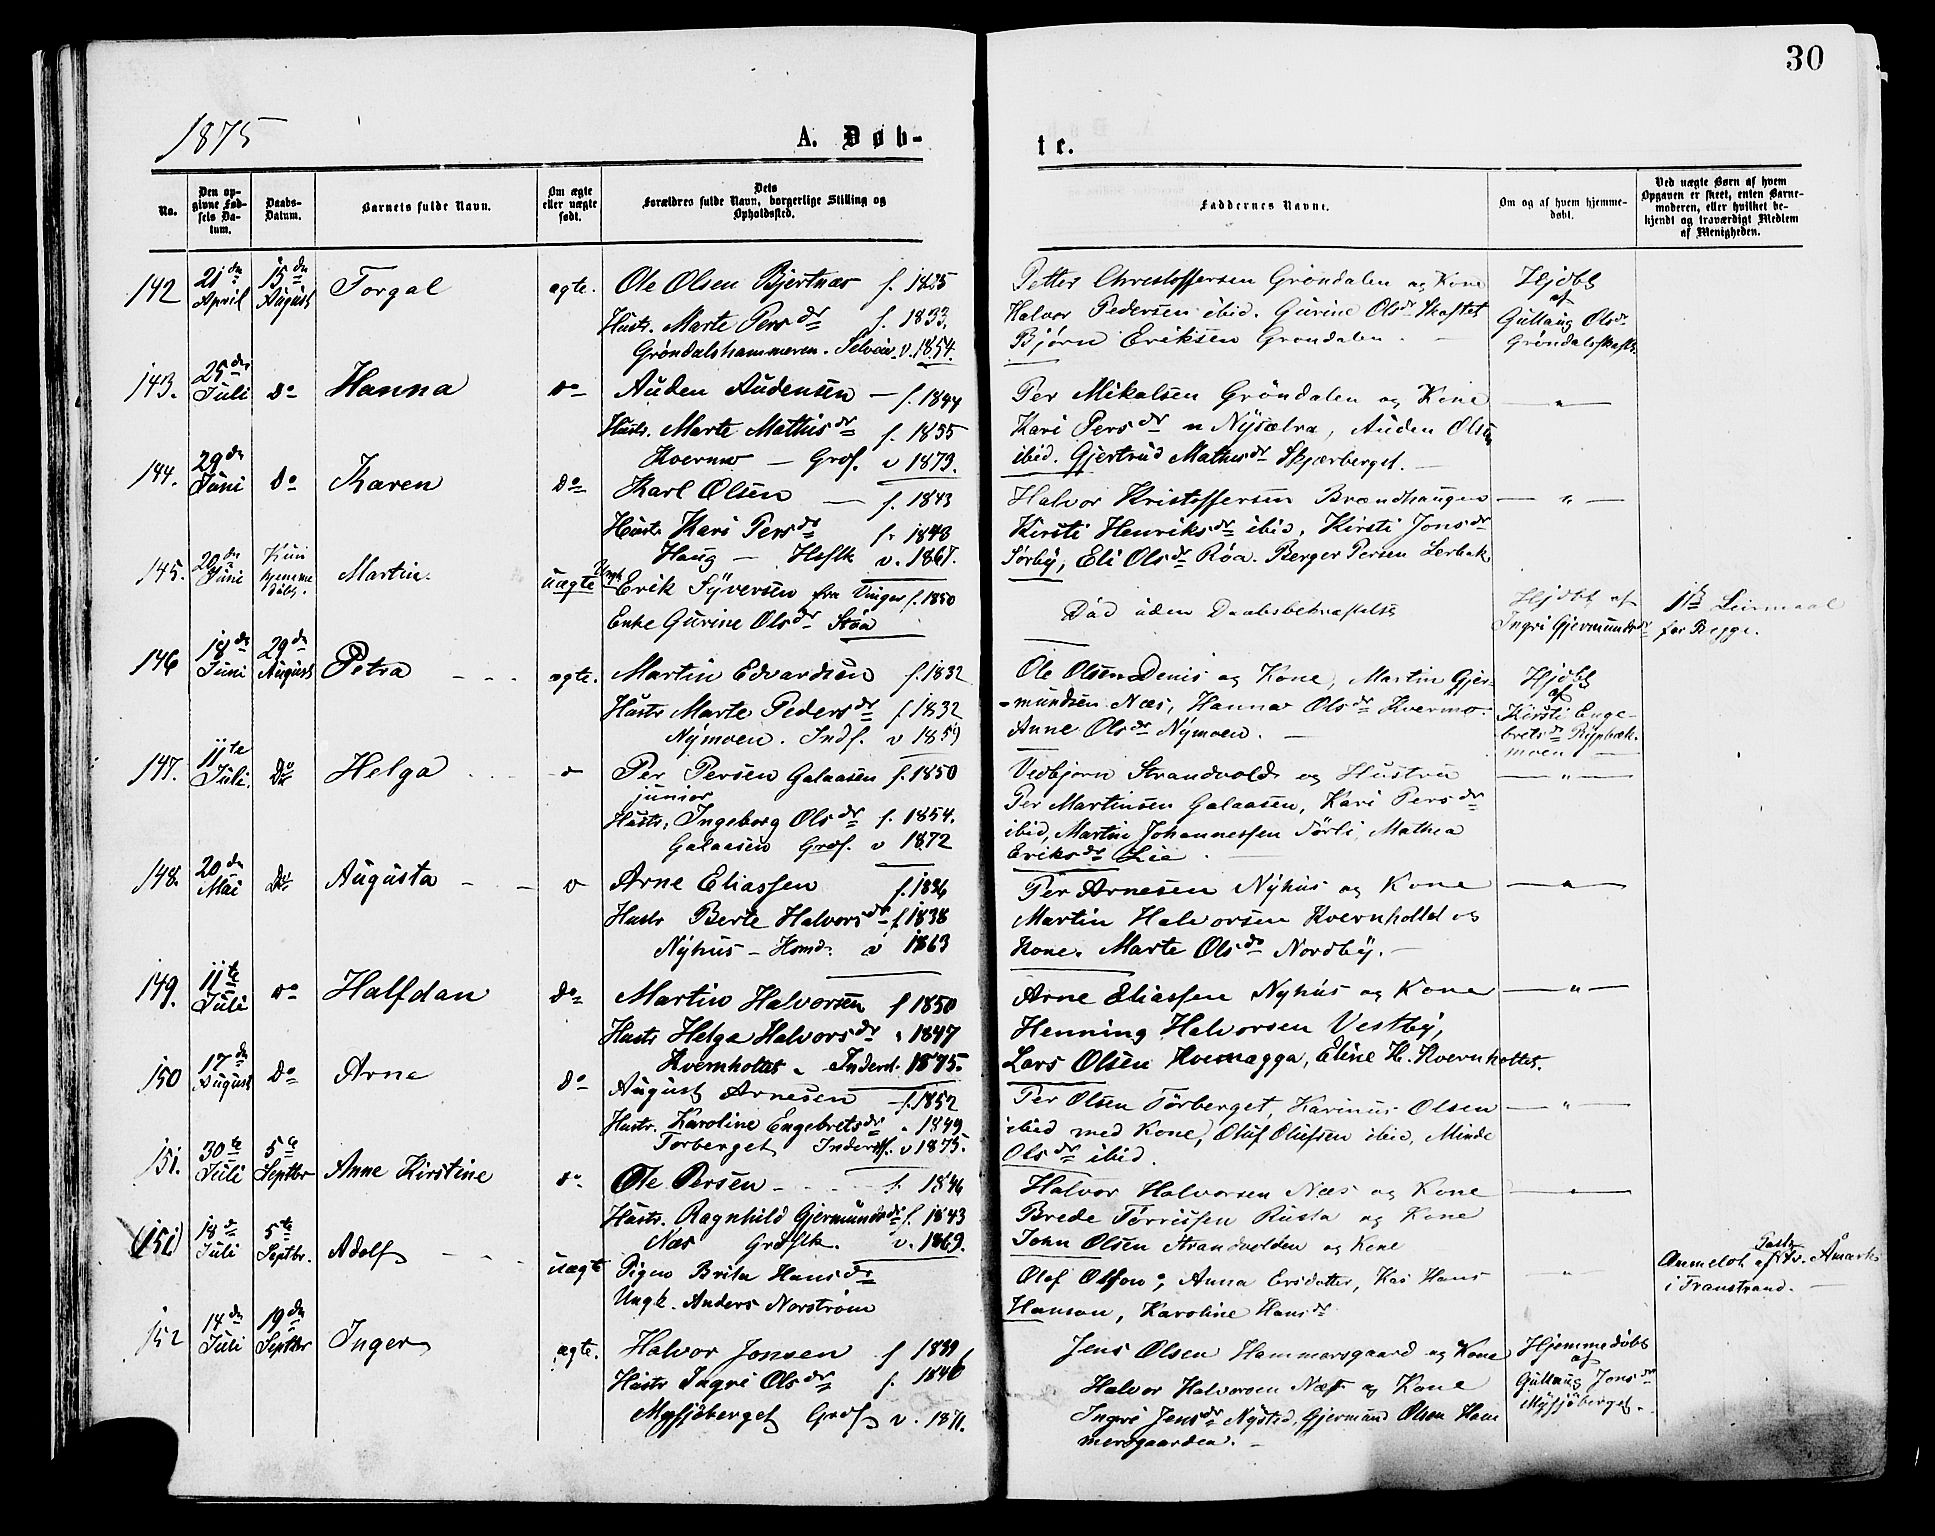 30
1875
A. Døb-
te.
No.
Den op-
givne Fød-
sels Da-
tum.
Daabs-
Datum.
Barnets fulde Navn.
Om ægte
eller uægte
født.
Dets
Forældres fulde Navn, borgerlige Stilling og
Opholdssted.
Faddernes Navne.
Om og af hvem hjemme-
døbt.
Ved uægte Børn af hvem
Opgaven er skeet, enten Barne-
moderen, eller hvilket be-
kjendt og troværdigt Medlem
af Menigheden.
142
21de
April
15de
August
Torgal
ægte.
Ole Olsen Bjertnæs f. 1825
Hustr. Marte Persdr f. 1833.
Grøndalshammeren. Selveier v. 1854.
Petter Chrestoffersen Grøndalen og Kone
Halvor Pedersen ibid. Gurine Olsdr Skaftet
Bjørn Eriksen Grøndalen.
Hjdbt
af
Gullaug Olsdr
Grøndalsskaftet
143.
25de
Juli
do
Hanna
do
Auden Audensen f. 1844
Hustr. Marte Mathisdr f. 1855
Kvernmo - Grof. v 1873.
Per Mikalsen Grøndalen og Kone
Kari Persdr n Nysætra, Auden Olsen
ibid. Gjertrud Mathisdr Skjærberget.
"
144.
29de
Juni
do
Karen
do
Karl Olsen f. 1843
Hustr Kari Persdr f. 1848
Haug - Hsflk v. 1867.
Halvor Kristoffersen Brændhaugen
Kirsti Henriksdr ibid, Kirsti Jonsdr
Sørby, Eli Olsdr Røa. Berger Persen Lerbak
"
145.
20de
Juni
Juni
hjemme
døbt.
Martin.
uægte
Ungk
Erik Syversen fra Vinger f. 1850
Enke Gurine Olsdr Støa
Død uden Daabsbekræftelse
Hjdbt af
Ingri Gjermundsdr
1ste Leiermaal
for Begge.
146
18de
Juni
29de
August
Petra
ægte.
Martin Edvardsen f. 1832
Hustr Marte Pedersdr f. 1832
Nymoen. Indf. v 1859
Ole Olsen Denis og Kone, Martin Gjer-
mundsen Næs, Hanna Olsdr Kvermo.
Anne Olsdr Nymoen.
Hjdbt
af
Kirsti Enge-
bretsdr Rypbæk-
moen
147.
11te
Juli.
Do
Helga
Per Persen Galaasen f. 1850
junior
Hustr, Ingeborg Olsdr f. 1854.
Galaasen Grof. v 1872
Vedbjørn Strandvold og Hustru
Per Martinsen Galaasen, Kari Persdr
ibid, Martin Johannessen Tørli, Mathea
Eriksdr Lie.
"
148.
20de
Mai
Do
Augusta
Arne Eliassen f. 1836
Hustr Berte Halvorsdr f 1838
Nyhus - Homd. v 1863
Per Arnesen Nyhus og Kone
Martin Halvorsen Kvernholtet og
Kone. Marte Olsdr Nordby.
"
149.
11te
Juli
do
Halfdan
do
Martin Halvorsen f 1850
Hustr Helga Halvorsdr " 1847
Kvernholtet. Inderst. 1875.
Arne Eliassen Nyhus og Kone
Henning Halvorsen Vestby,
Lars Olsen Kvernagga, Eline H. Kvernholtet.
"
150
17de
August
Do
Arne
do
August Arnesen f. 1852
Hustr. Karoline Engebretsdr " 1849
Torberget Inderst. v 1875.
Per Olsen Tørberget, Karinus Olsen
ibid med Kone, Oluf Olufsen ibid, Minde
Olsdr ibid.
"
151.
30te
Juli
5te
Septbr
Anne Kirstine
do
Ole Persen f. 1846
Hustr. Ragnhild Gjermundsdr f. 1843
Næs Grdflk. v. 1869.
Halvor Halvorsen Næs og Kone
Brede Tørrissen Rusta og Kone
John Olsen Strandvolden og Kone
"
(151)
18de
Juli
5te
Septbr.
Adolf
uægte
Pigen Brita Hansdr
Ungk. Anders Norstrøm
Olof Olsson, Anna Ersdotter, Kas Hans
Hanson, Karoline Hansdr
"
Anmeldt af Past. Åmark
i Transtrand.
152
14de
Juli
19de
Septbr
Inger
ægte.
Halvor Jonsen f 1839
Hustr Ingri Olsdr f. 1846
Mysjøberget Grof v. 1871.
Jens Olsen Hammersgaard og Kone
Halvor Halvorsen Næs og Kone
Ingri Jensdr Nysted, Gjermund Olsen Ham
mersgaarden.
Hjemmedøbt
af
Gullaug Jonsdr
Mysjøberget.